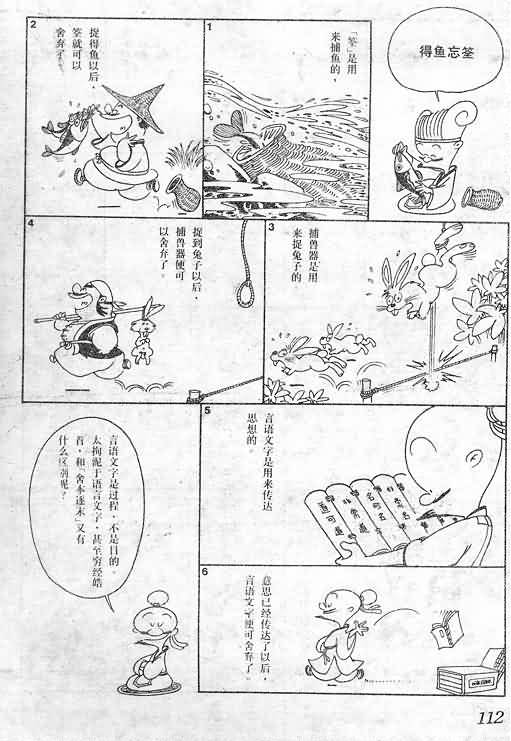 得鱼忘筌
1
「筌」是用
来捕鱼的，
2
捉得鱼以后，
筌就可以
舍弃了。
3
捕兽器是用
来捉兔子的
4
捉到兔子以后，
捕兽器便可
以舍弃了。
5
言语文字是用来传达
思想的。
道可道
非常道
名可名
非常名
6
意思已经传达了以后，
言语文字便可舍弃了。
言语文字是过程，不是目的。
太拘泥于语言文字，甚至穷经皓
首，和「舍本逐末」又有
什么区别呢？
112